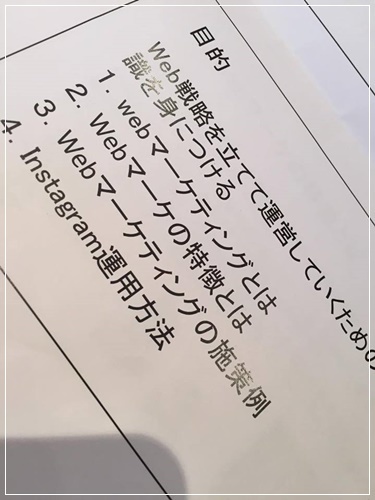 目的
Web戦略を立てて運営していくための
識を身につける
1. webマーケティングとは
2. Webマーケの特徴とは
3. Webマーケティングの施策例
4. Instagram運用方法